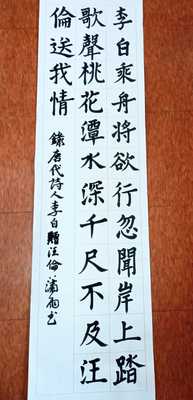 李白乘舟將欲行忽聞岸上踏
歌聲桃花潭水深千尺不及汪
倫送我情
錄唐代詩人李白贈汪倫